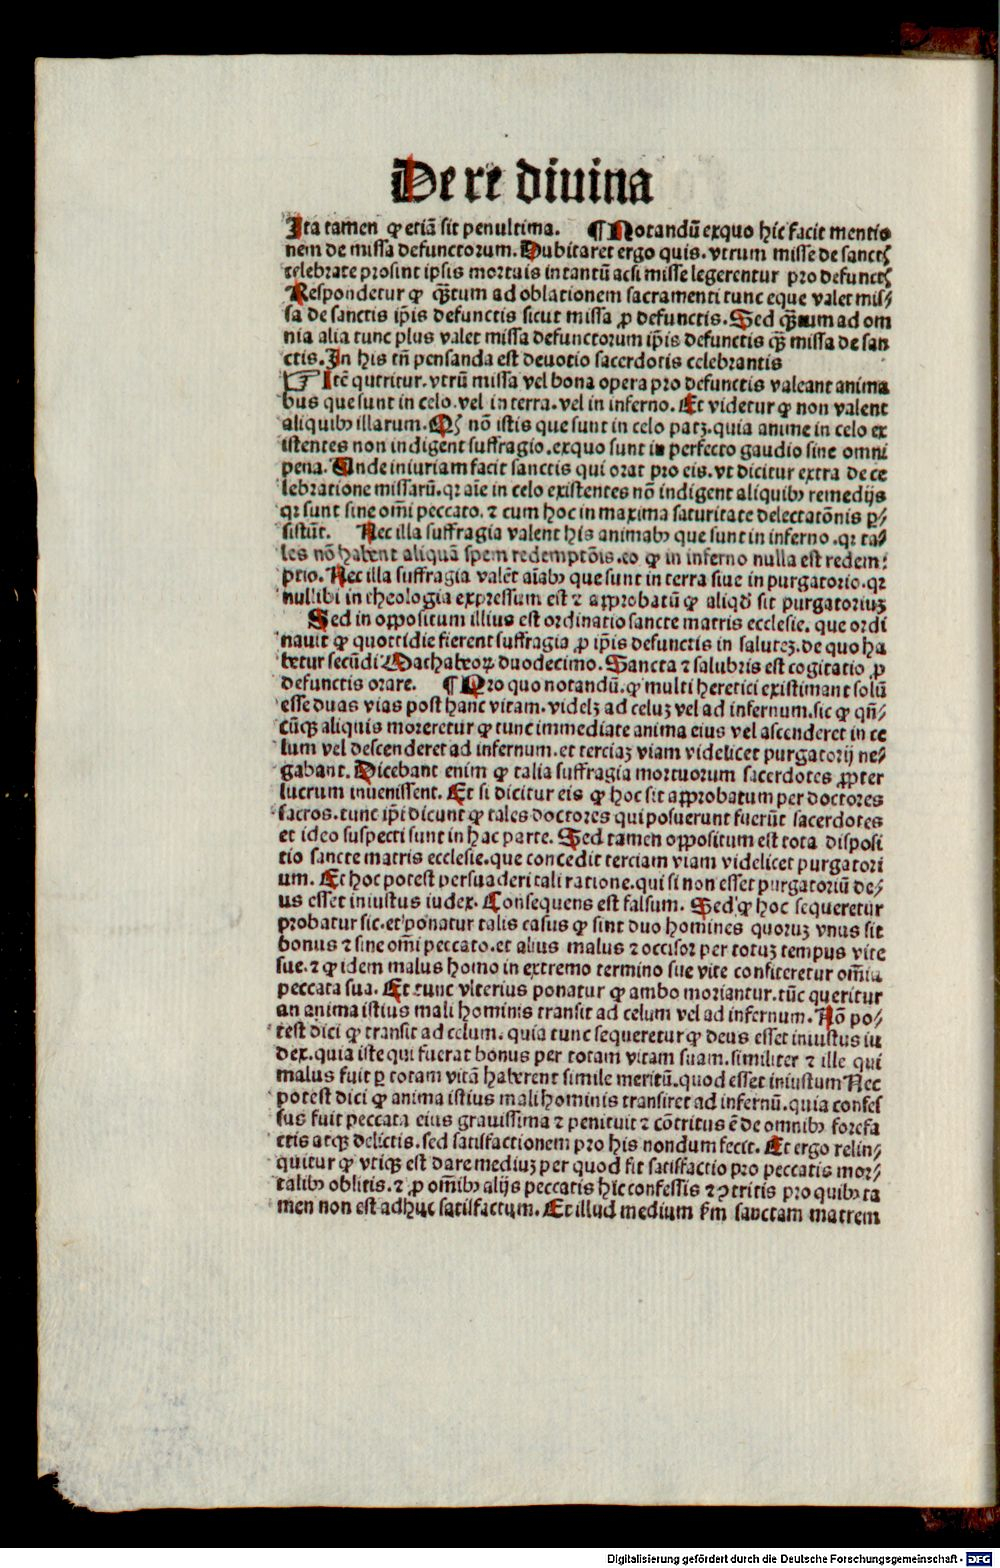 De re diuina
Ita tamen ꝙ etiā sit penultima. ¶ Notandū exquo hic facit mentio
nem de missa defunctorum. Dubitaret ergo quis. vtrum misse de sanctꝭ
celebrate prosint ipsis mortuis in tantū acsi misse legerentur pro defunctꝭ
Respondetur ꝙ q̄ꝫtum ad oblationem sacramenti tunc eque valet mis⸗
sa de sanctis ip̄is defunctis sicut missa ꝓ defunctis. Sed q̄ꝫtum ad om
nia alia tunc plus valet missa defunctorum ip̄is defunctis q̄ꝫ missa de san
ctis. In his tn̄ pensanda est deuotio sacerdotis celebrantis
☞ Itē queritur. vtrū missa vel bona opera pro defunctis valeant anima
bus que sunt in celo. vel in terra. vel in inferno. Et videtur ꝙ non valent
aliquibꝫ illarum. Qꝭ nō istis que sunt in celo patꝫ. quia anime in celo ex
istentes non indigent suffragio. exquo sunt in perfecto gaudio sine omni
pena. Unde iniuriam facit sanctis qui orat pro eis. vt dicitur extra de ce
lebratione missarū. qꝛ aīe in celo existentes nō indigent aliquibꝫ remedijs
qꝛ sunt sine om̄i peccato. ⁊ cum hoc in maxima saturitate delectatōnis ꝑ⸗
sistūt. Nec illa suffragia valent his animabꝫ que sunt in inferno. qꝛ ta⸗
les nō habent aliquā spem redemptōis. eo ꝙ in inferno nulla est redem⸗
ptio. Nec illa suffragia valēt aīabꝫ que sunt in terra siue in purgatorio. qꝛ
nullibi in theologia expressum est ⁊ approbatū ꝙ aliqd̓ sit purgatoriuꝫ
Sed in oppositum illius est ordinatio sancte matris ecclesie. que ordi
nauit ꝙ quottidie fierent suffragia ꝓ ip̄is defunctis in saluteꝫ. de quo ha
betur secūdi Machabeoꝝ duodecimo. Sancta ⁊ salubris est cogitatio ꝓ
defunctis orare. ¶ Pro quo notandū. ꝙ multi heretici existimant solū
esse duas vias post hanc vitam. videlꝫ ad celuꝫ vel ad infernum. sic ꝙ qn̄⸗
cūqꝫ aliquis moreretur ꝙ tunc immediate anima eius vel ascenderet in ce
lum vel descenderet ad infernum. et terciaꝫ viam videlicet purgatorij ne⸗
gabant. Dicebant enim ꝙ talia suffragia mortuorum sacerdotes ꝓpter
lucrum inuenissent. Et si dicitur eis ꝙ hoc sit approbatum per doctores
sacros. tunc ip̄i dicunt ꝙ tales doctores qui posuerunt fuerūt sacerdotes
et ideo suspecti sunt in hac parte. Sed tamen oppositum est tota disposi
tio sancte matris ecclesie. que concedit terciam viam videlicet purgatori
um. Et hoc potest persuaderi tali ratione. qui si non esset purgatoriū de⸗
us esset iniustus iudex. Consequens est falsum. Sed ꝙ hoc sequeretur
probatur sic. et ponatur talis casus ꝙ sint duo homines quoruꝫ vnus sit
bonus ⁊ sine om̄i peccato. et alius malus ⁊ occisor per totuꝫ tempus vite
sue. ⁊ ꝙ idem malus homo in extremo termino sue vite confiteretur om̄ia
peccata sua. Et tunc vlterius ponatur ꝙ ambo moriantur. tūc queritur
an anima istius mali hominis transit ad celum vel ad infernum. Nō po⸗
test dici ꝙ transit ad celum. quia tunc sequeretur ꝙ deus esset iniustus iu
dex. quia iste qui fuerat bonus per totam vitam suam. similiter ⁊ ille qui
malus fuit ꝑ totam vitā haberent simile meritū. quod esset iniustum Nec
potest dici ꝙ anima istius mali hominis transiret ad infernū. quia confes
sus fuit peccata eius grauissima ⁊ penituit ⁊ cōtritus ē de omnibꝫ forefa
ctis atqꝫ delictis. sed satisfactionem pro his nondum fecit. Et ergo relin⸗
quitur ꝙ vtiqꝫ est dare mediuꝫ per quod fit satisfactio pro peccatis mor⸗
talibꝫ oblitis. ⁊ ꝓ om̄ibꝫ alijs peccatis hic confessis ⁊ ꝯtritis pro quibꝫ ta
men non est adhuc satisfactum. Et illud medium ẜm sanctam matrem
Digitalisierung gefördert durch die Deutsche Forschungsgemeinschaft - DFG